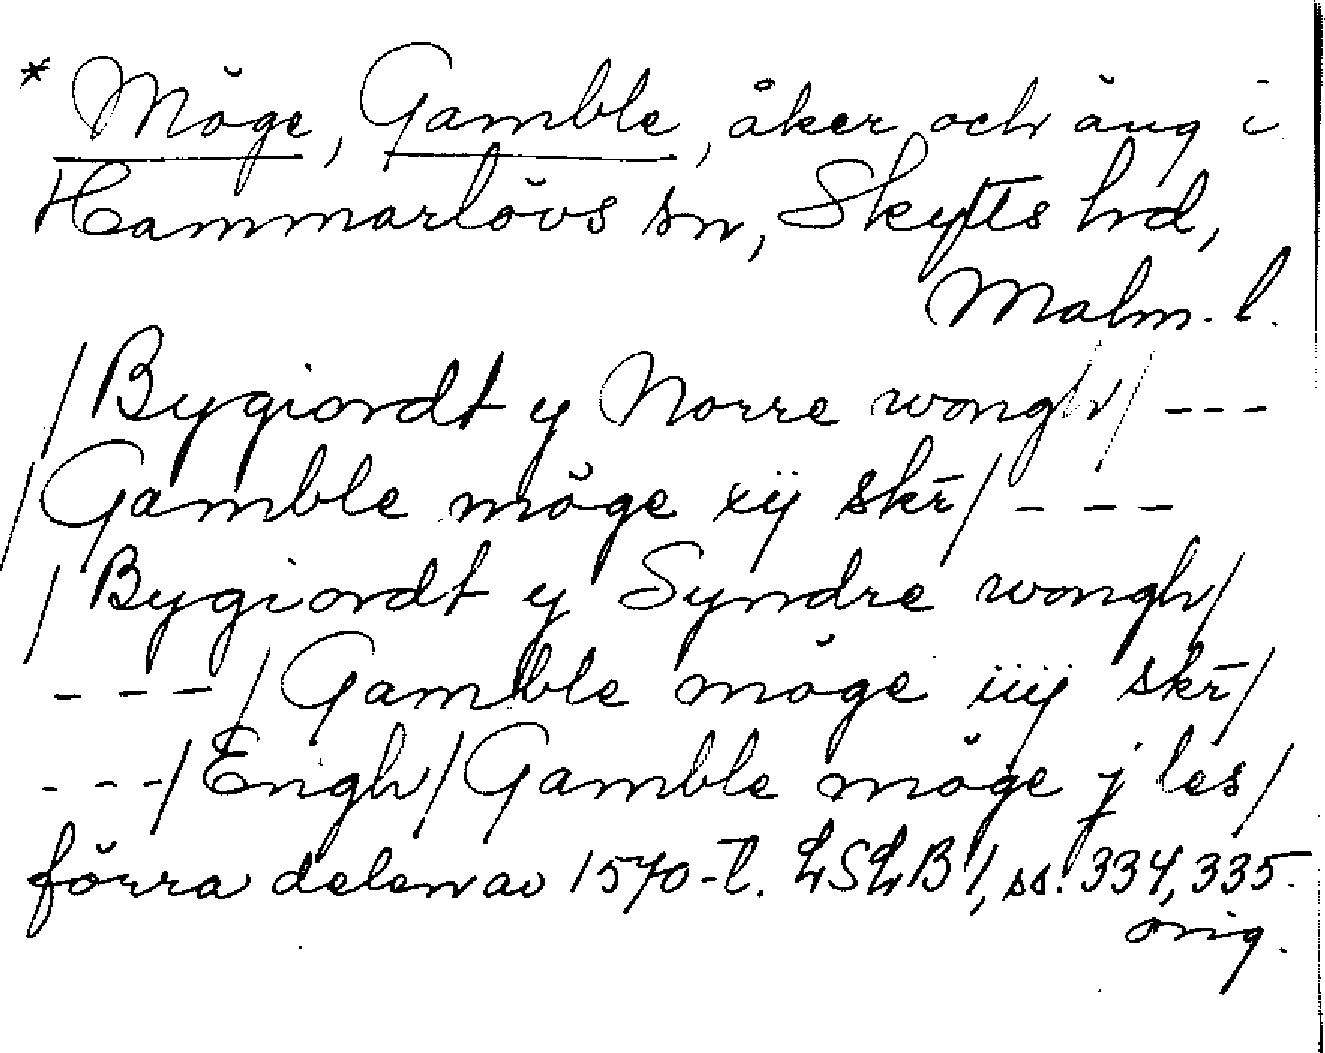 * Möge, Gamble, åker och äng i
Hammarlövs sn, Skytts hd,
Malm. l.
/Bygiordt y Norre wongh/ ---
/Gamble möge xij skr̄/ ---
/Bygiordt y Syndre wongh/
---/Gamble möge iiij skr̄/
---/Engh/Gamble möge j les/
förra delen av 1570-t. LSLB1, ss. 334, 335.
orig.